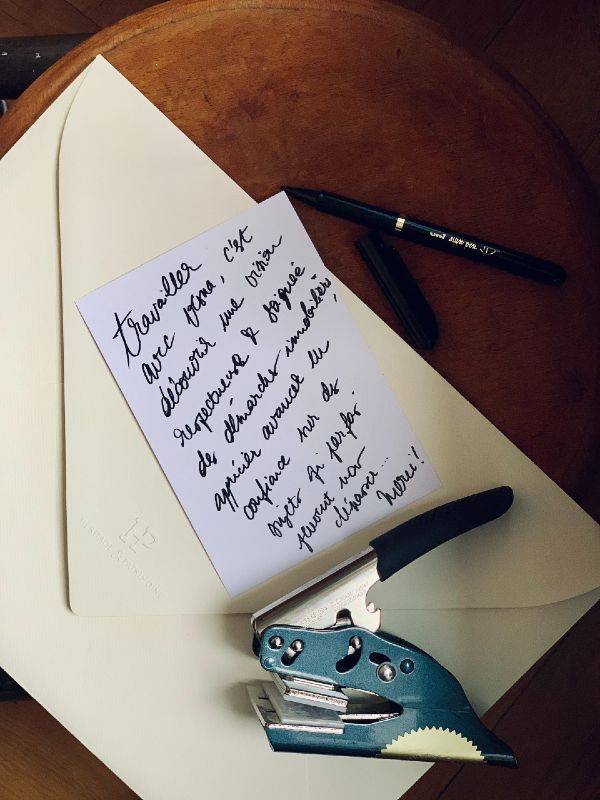 travailler
avec          , c'est
découvrir une vision
respectueuse & sacrée
des démarches immobilières,
apprécier avancer en
confiance sur des
sujets qi parfois
peuvent nous
dépasser...
Merci!
HP
& PATRIMOINE